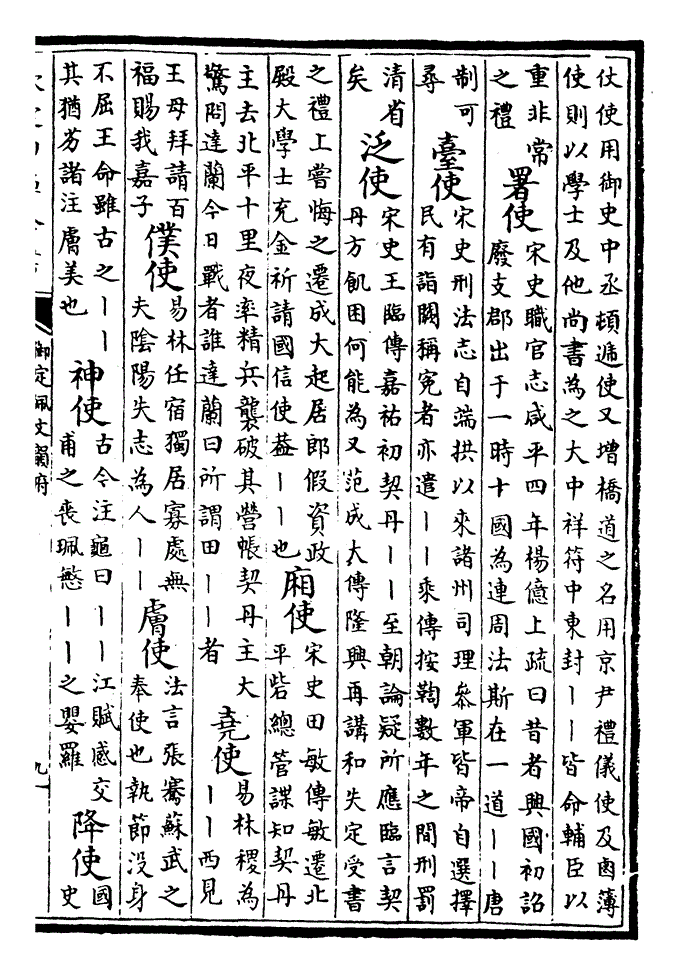 仗使用御史中丞頓遞使又增橋道之名用京尹禮儀使及鹵簿
使則以學士及他尚書為之大中祥符中東封丨丨皆命輔臣以
重非常
之禮
署使
宋史職官志咸平四年楊億上疏曰昔者興國初詔
廢支郡出于一時十國為連周法斯在一道丨丨唐
制可
尋
臺使
宋史刑法志自端拱以來諸州司理參軍皆帝自選擇
民有詣闕稱冤者亦遣丨丨乘傳按鞫數年之間刑罰
清省
矣
泛使
宋史王臨傳嘉祐初契丹丨丨至朝論疑所應臨言契
丹方飢困何能為又范成大傳隆興再講和失定受書
之禮上嘗悔之遷成大起居郎假資政
殿大學士充金祈請國信使葢丨丨也
廂使
宋史田敏傳敏遷北
平砦總管諜知契丹
主去北平十里夜率精兵襲破其營帳契丹主大
驚問達蘭今日戰者誰達蘭曰所謂田丨丨者
堯使
易林稷為
丨丨西見
王母拜請百
福賜我嘉子
僕使
易林任宿獨居寡處無
夫陰陽失志為人丨丨
膚使
法言張騫蘇武之
奉使也執節没身
不屈王命雖古之丨丨
其猶劣諸注膚美也
神使
古今注龜曰丨丨江賦感交
甫之喪珮愍丨丨之嬰羅
降使
國
史
御定佩文韻府